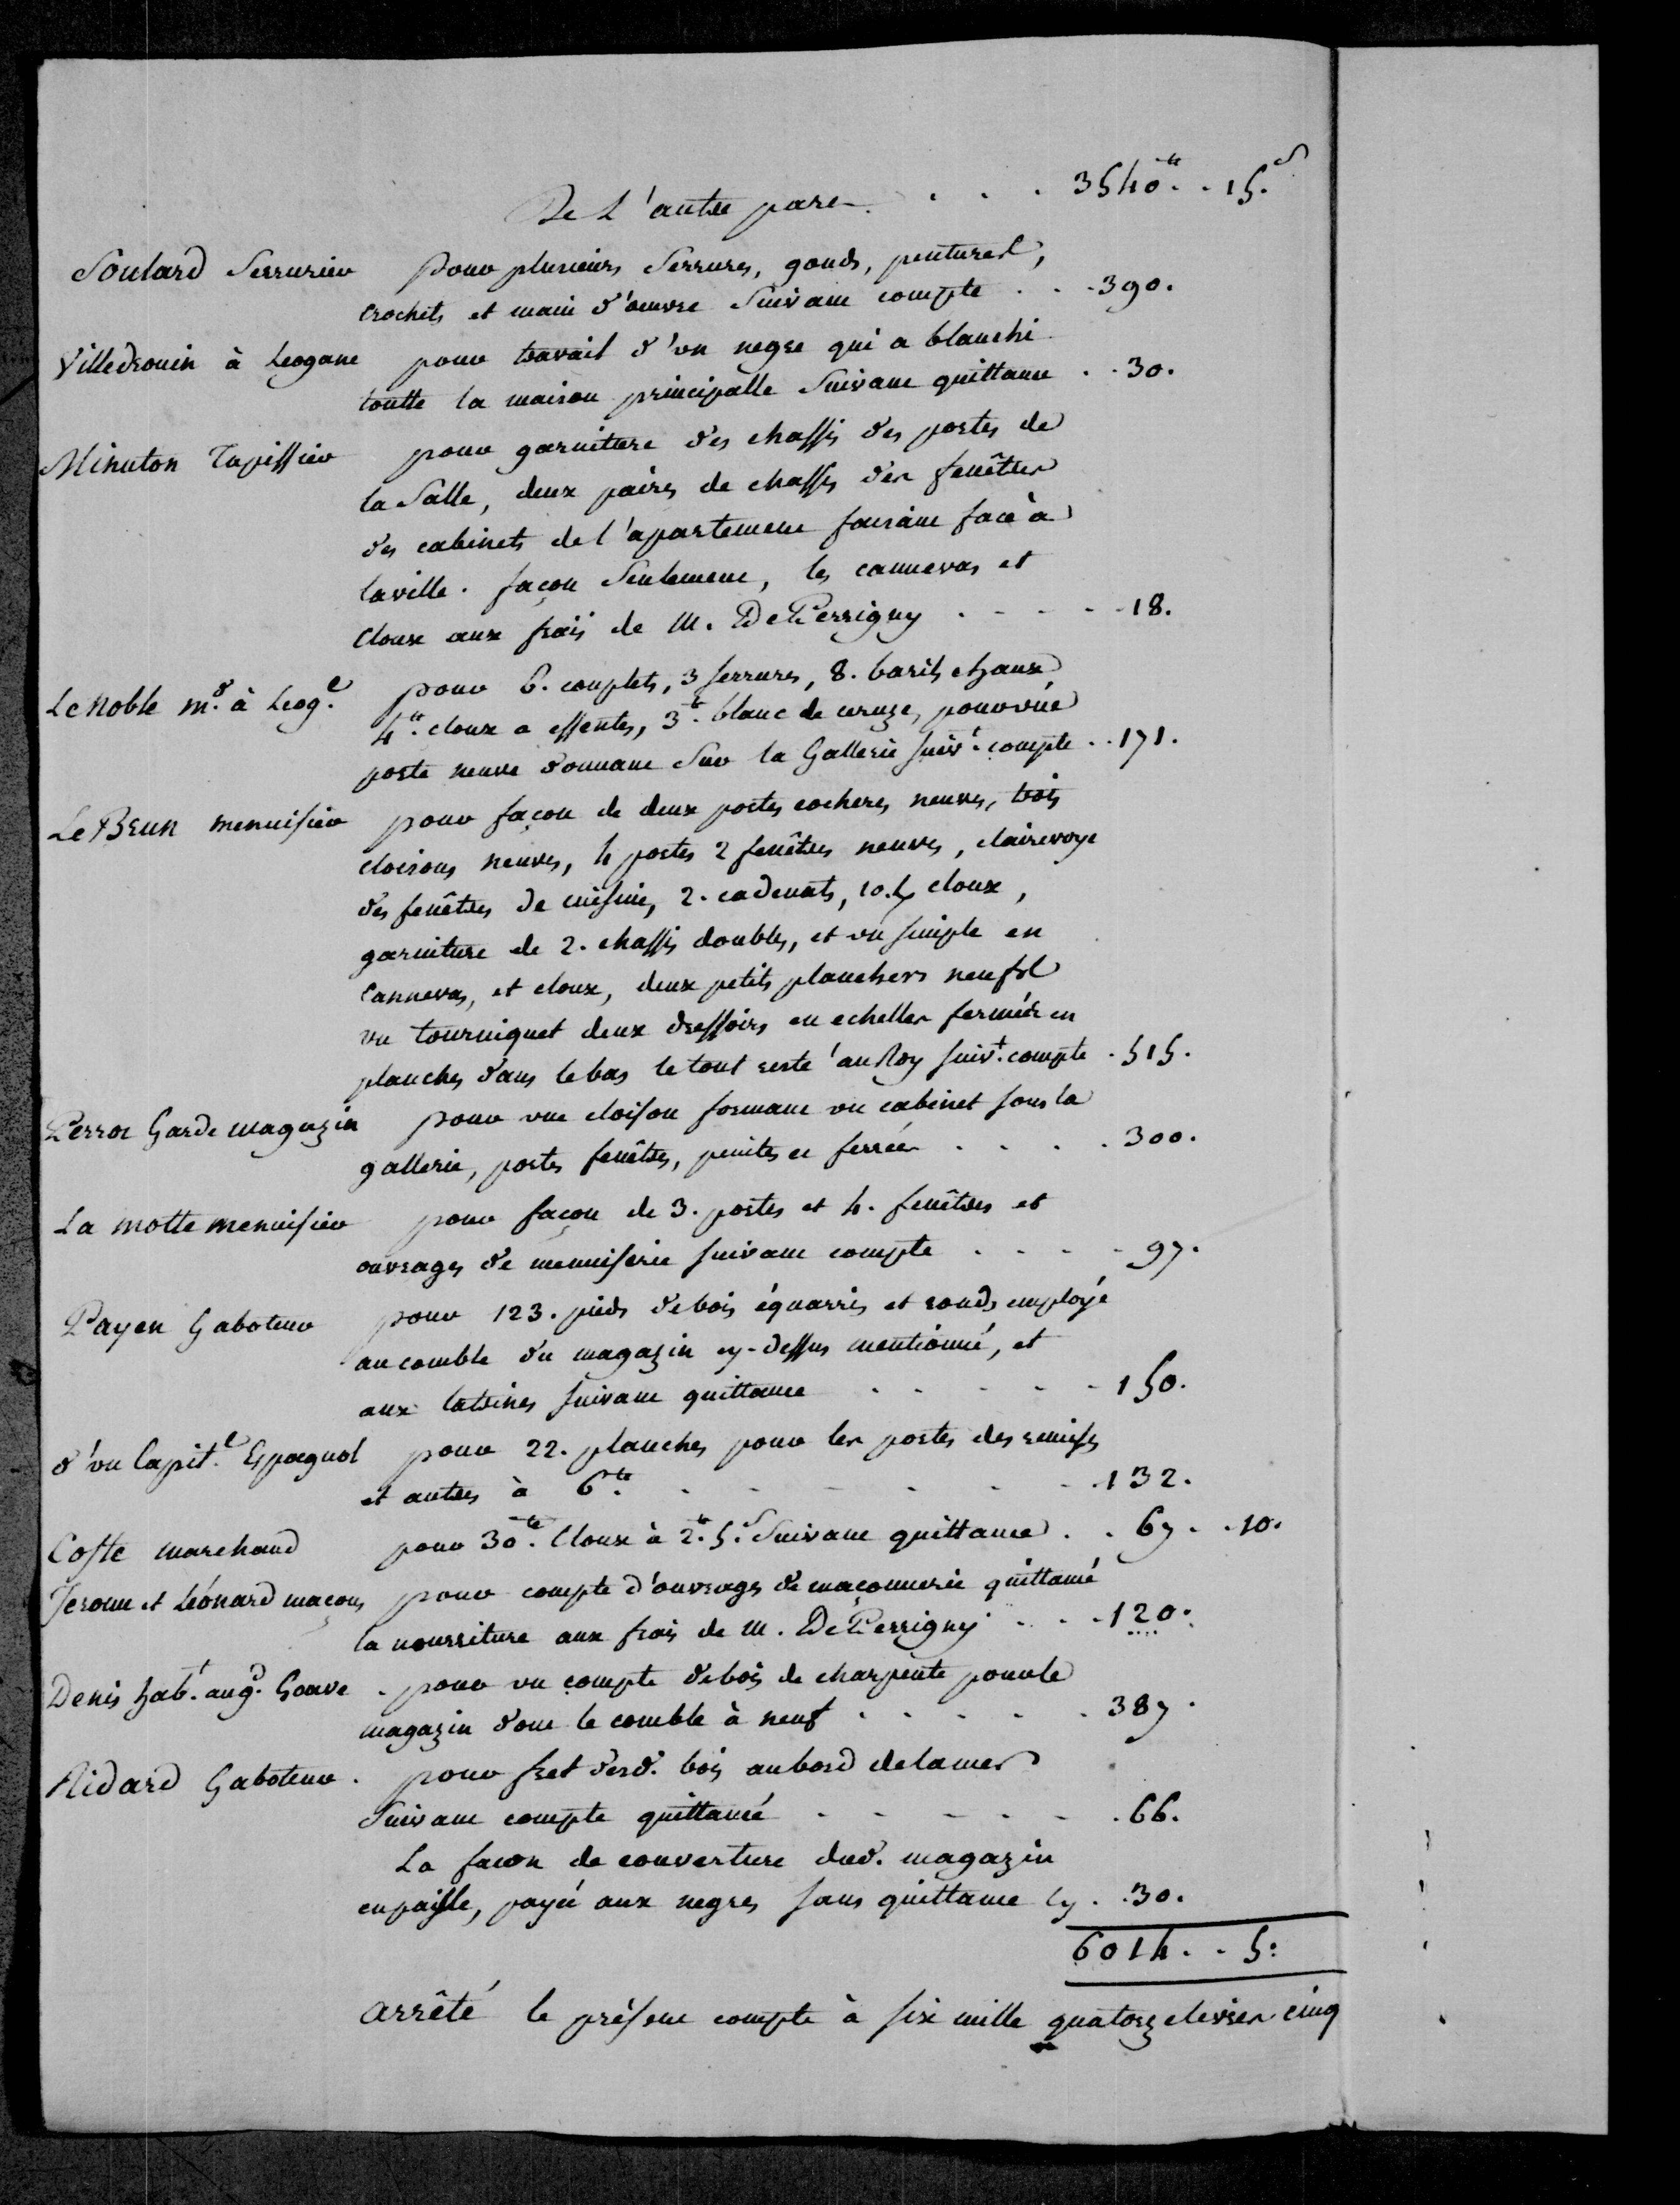 De L'autre part . . . 3540.lt . 15.s
Soulard Serrurier pour plusieurs Serrures, gonds, pentures,
crochets et main d'oeuvre Suivant compte . . . 390.
Villedrouin à Leogane pour travail d'un negre qui a blanchi
toutte la maison principalle Suivant quittance . . 30.
Minuton Tapissier pour garniture des chassis des portes de
la Salle, deux paires de chassis des fenêtres
des cabinets de l'apartement faisant face à
la ville. façon Seulement, les cannevas et
Cloux aux frais de M. De Perrigny . . . . 18.
Le Noble m.d à Leog.e pour 6. couplets, 3 serrures, 8. barils chaux,
4.lt cloux a essentes, 3.lt blanc de ceruze, pour une
porte neuve donnant Sur la Gallerie suiv.t compte . . 171.
Le Brun menuisier pour façon de deux portes cocheres neuves, trois
cloisons neuves, 4 portes 2 fenêtres neuves, clairevoye
des fenêtres de cuisine, 2. cadenats, 10. lt cloux,
garniture de 2. chassis doubles, et un simple en
Cannevas, et cloux, deux petits planchers neufs
un tourniquet deux dressoirs en echelles fermés en
planches dans le bas le tout resté au Roy suiv.t compte . 515.
Perrot Garde magazin pour une cloison formant un cabinet sous la
gallerie, portes fenêtres, peintes et ferrées . . . . 300.
La motte menuisier pour façon de 3. portes et 4. fenêtres et
ouvrages de menuiserie suivant compte . . . . 97.
Payen Caboteur pour 123. pieds de bois équarris et ronds employé
au comble du magazin cy-dessus mentionné, et
aux latrines suivant quittance . . . . . 150.
d'un Capit.e Espagnol pour 22. planches pour les portes des remises
et autres à 6.lt . . . . . . 132.
Coste marchand pour 30.lt Cloux à 2.lt 5.s Suivant quittance . . 67 . . 10.
Jerome et Léonard maçons pour compte d'ouvrages de maçonnerie quittancé
la nourriture aux frais de M. De Perrigny . . . 120.
Denis hab.t au g.d Goave . pour un compte de bois de charpente pour le
magazin dont le comble à neuf . . . . . 387.
Ridard Caboteur . pour fret desd. bois au bord de la mer
Suivant compte quittancé . . . . . . 66.
La facon de couverture dud. magazin
en paille, payée aux negres sans quittance Cy . . 30.
6014 . . 5.
arrêté le présent compte à six mille quatorze livres cinq